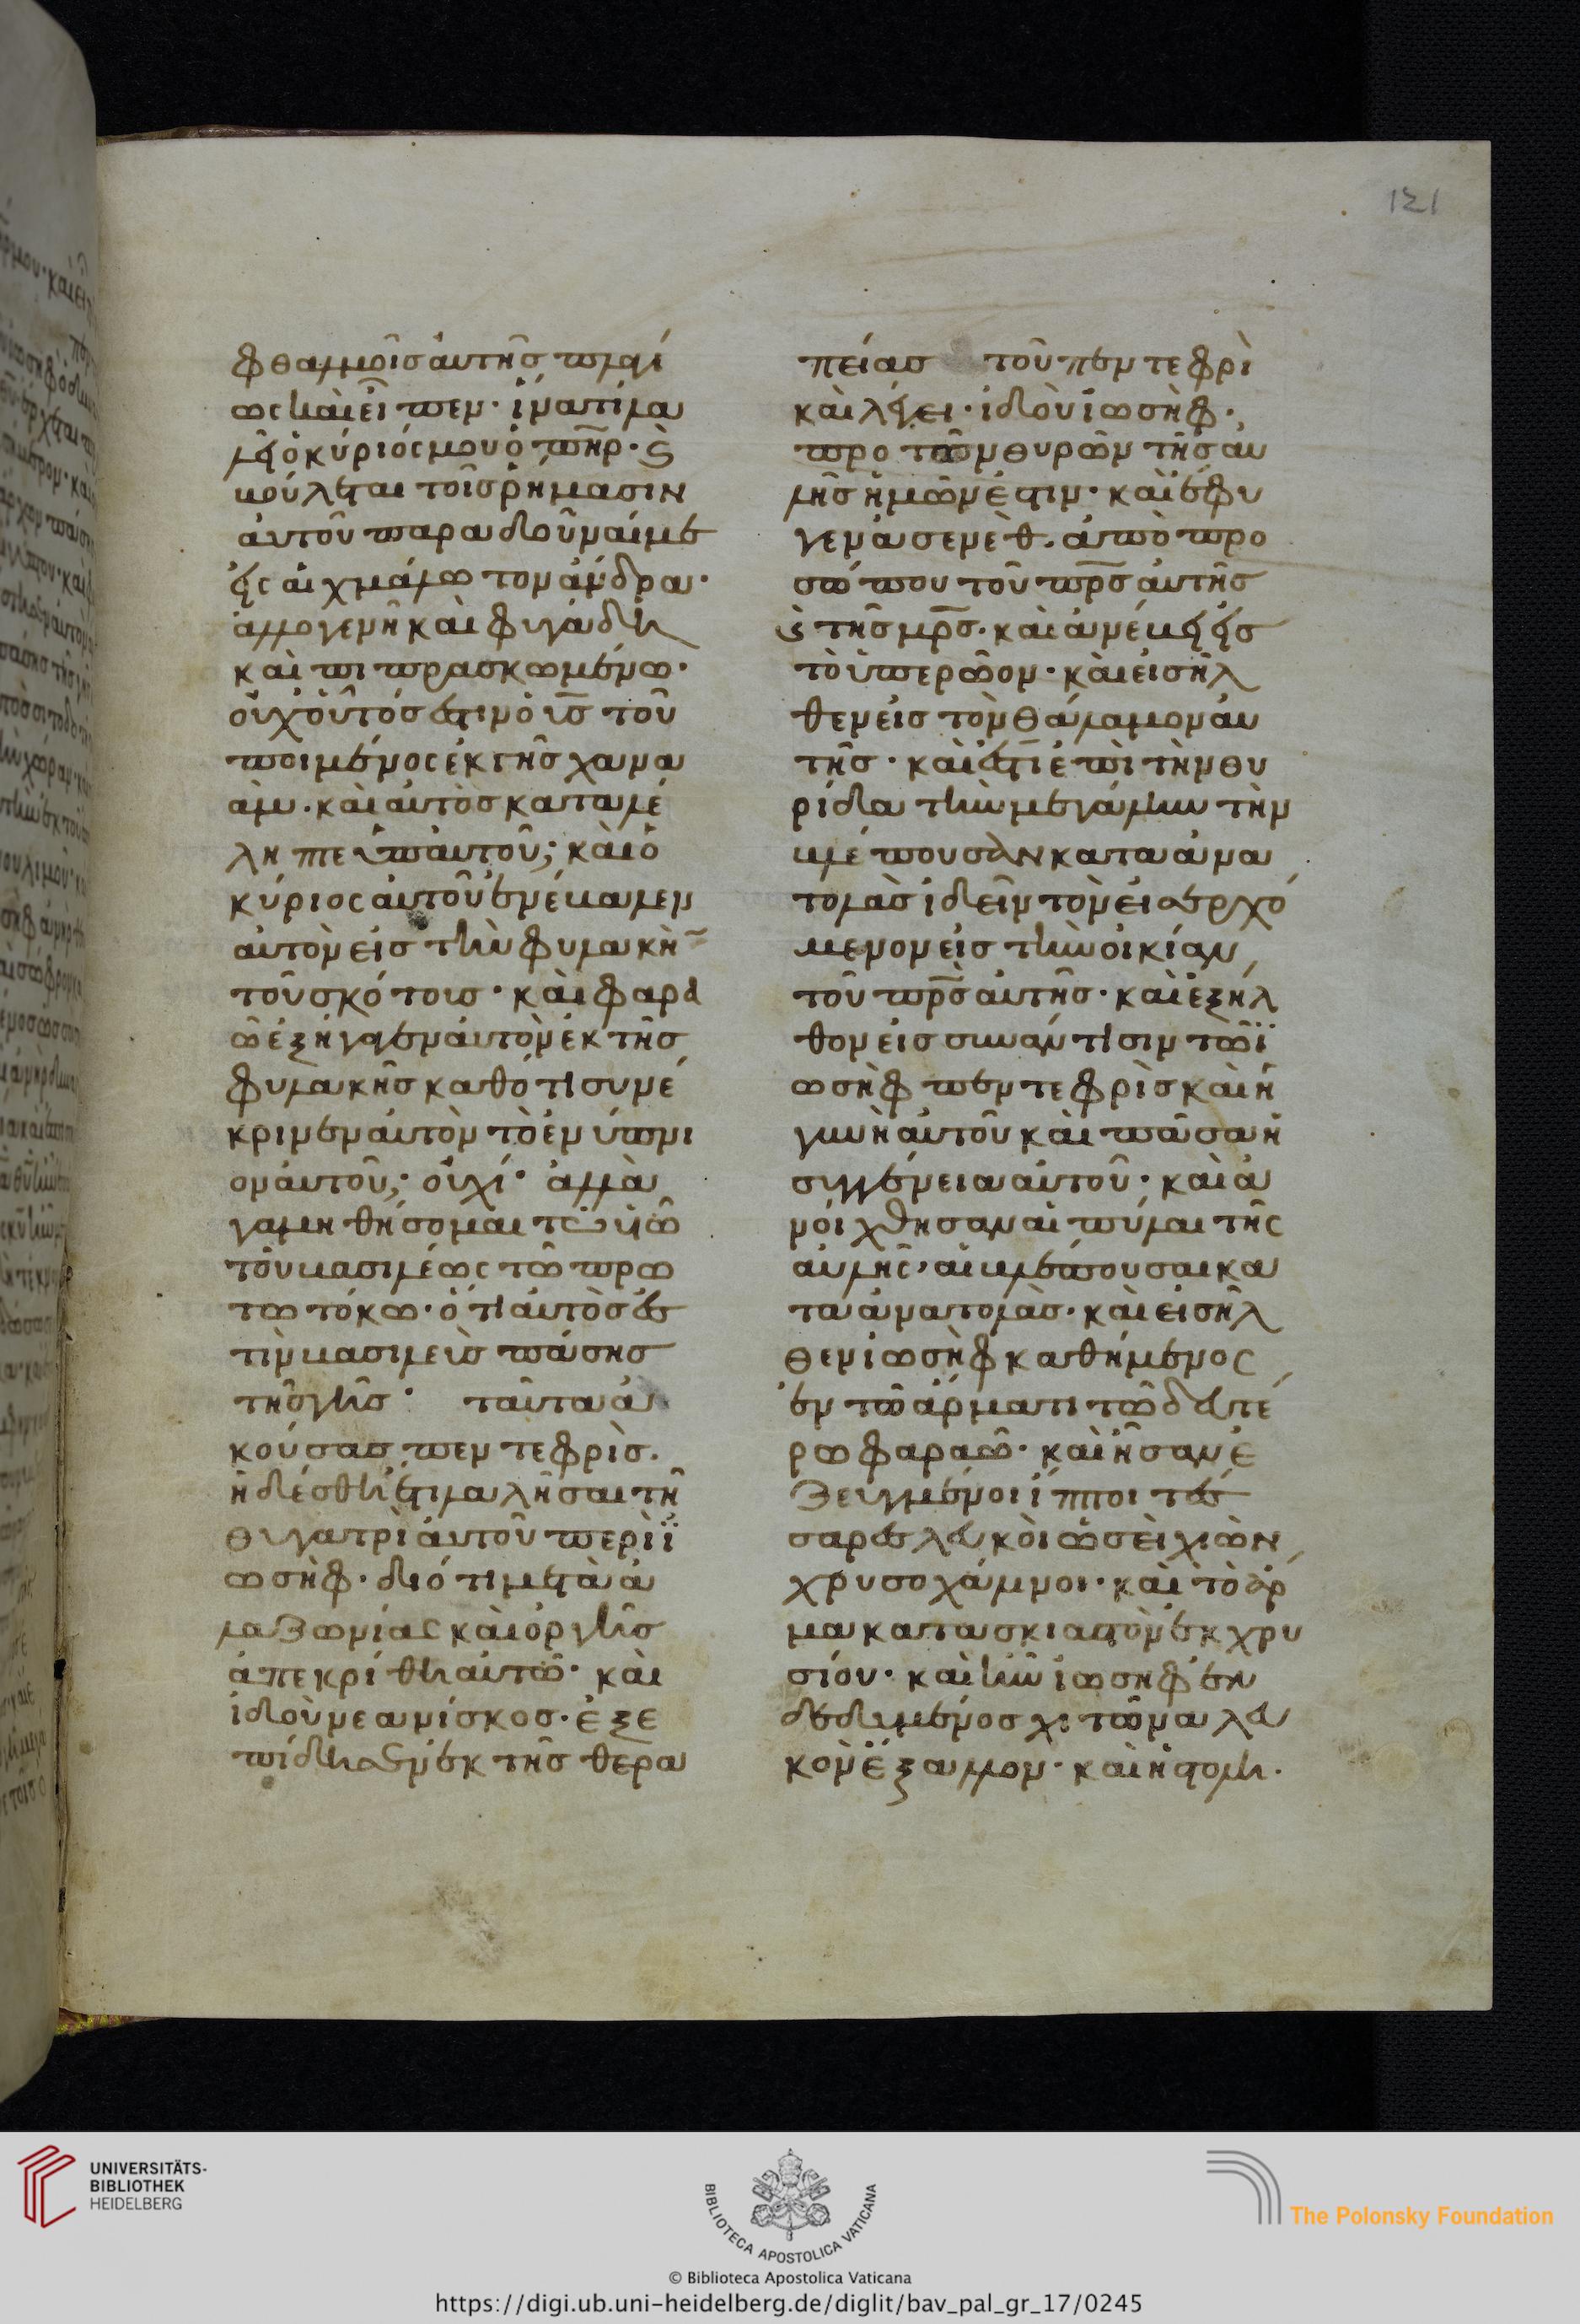 φθαλμοῖς αὐτῆς πλαγί
ως καὶ εἶπεν· ἱνατί λα
λεῖ ὁ κύριός μου ὁ π̅η̅ρ· ϗ
βούλεται τοῖς ῥήμασιν
αὐτοῦ παραδοῦναί με
εἰς αἰχμάλωτον ἄνδρα·
ἀλλογενῆ καὶ φυγάδη
καὶ πιπρασκωμένω·
οὐχ οὗτός ἐστιν ὁ υ̅ς̅ τοῦ
ποιμένος ἐκ γῆς χανα
άν· καὶ αὐτὸς κατέλέ
λήπτε ὑπ' αὐτοῦ; καὶ ὁ
κύριος αὐτοῦ ἐνέβαλεν
αὐτὸν εἰς τὴν φυλακὴ̅
τοῦ σκότους· καὶ φαρα
ὼ ἐξήγαγεν αὐτὸν ἐκ τῆς
φυλακῆς καθότι συνέ
κρινεν αὐτὸν τὸ ἐνύπνι
ον αὐτοῦ; οὐχί· ἀλλὰ
γαμηθήσομαι τῶ υἱῶ
τοῦ βασιλέως τῶ πρω
τωτόκω· ὅτι αὐτὸς ἐς
τὶν βασιλεὺς πάσης
τῆς γῆς· ταῦτα ἀ
κούσας πεντεφρὶς.
ἠδέσθη ἔτι λαλῆσαι τῆ
θυγατρὶ αὐτοῦ περὶ ϊ
ωσὴφ· διότι μετὰ ἀ
λαζωνίας καὶ ὀργῆς
ἀπεκρίθη αὐτῶ· καὶ
ἰδοὺ νεανίσκος· ἐξε
πίδησεν ἐκ τῆς θερα
πείας τοῦ πεντεφρὶ
καὶ λέγει· ἰδοὺ ἰωσὴφ·
πρὸ τῶν θυρῶν τῆς αὐ
λῆς ἡμῶν ἔστιν· καὶ ἔφυ
γεν ἀσενὲθ. ἀπὸ προ
σώπου τοῦ π̅ρ̅ς̅ αὐτῆς
ϗ τῆς μ̅ρ̅ς̅. καὶ ἀνέβη εἰς
τὸ ὑπερῶον· καὶ εἰσῆλ
θεν εἰς τὸν θάλαμον αὐ
τῆς· καὶ ἔστι ἐπὶ τὴν θυ
ρίδα τὴν μεγάλην τὴν
βλέπουσαν κατα ἀνα
τολὰς ἰδεῖν τὸν εἰσερχό
μενον εἰς τὴν οἰκίαν
τοῦ π̅ρ̅ς̅ αὐτῆς· καὶ ἐξῆλ
θον εἰς συνάντισιν τῶ ϊ
ωσὴφ πεντεφρὶς καὶ ἡ
γυνὴ αὐτοῦ καὶ πᾶσα ἡ
συγγένεια αὐτοῦ· καὶ ἀ
νοίχθησαν αἱ πύλαι τῆς
αὐλῆς, αἱ βλέπουσαι κα
τα ἀνατολὰς· καὶ εἰσῆλ
θεν ἰωσὴφ καθήμενος
ἐν τῶ ἅρματι τῶ δευτέ
ρω φαραὼ· καὶ ἦσαν ἐ
ζευγμένοι ἵπποι τέσ
σαρες λευκοὶ ὡσεὶ χιὼν
χρυσοχάλινοι· καὶ τὸ ἅρ
μα κατασκίαστὸν ἐκ χρυ
σίου· καὶ ἦν ἰωσὴφ ἐν
δεδυμένος χιτῶνα λευ
κὸν ἔξαλλον· καὶ ἡ στολὴ·
121
UNIVERSITÄTS-
BIBLIOTHEK
HEIDELBERG
BIBLIOTECA APOSTOLICA VATICANA
The Polonsky Foundation
© Biblioteca Apostolica Vaticana
https://digi.ub.uni-heidelberg.de/diglit/bav_pal_gr_17/0245